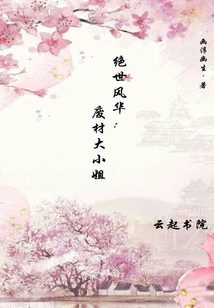 幽浮幽生·著
绝世风华：
废材大小姐
云起书院